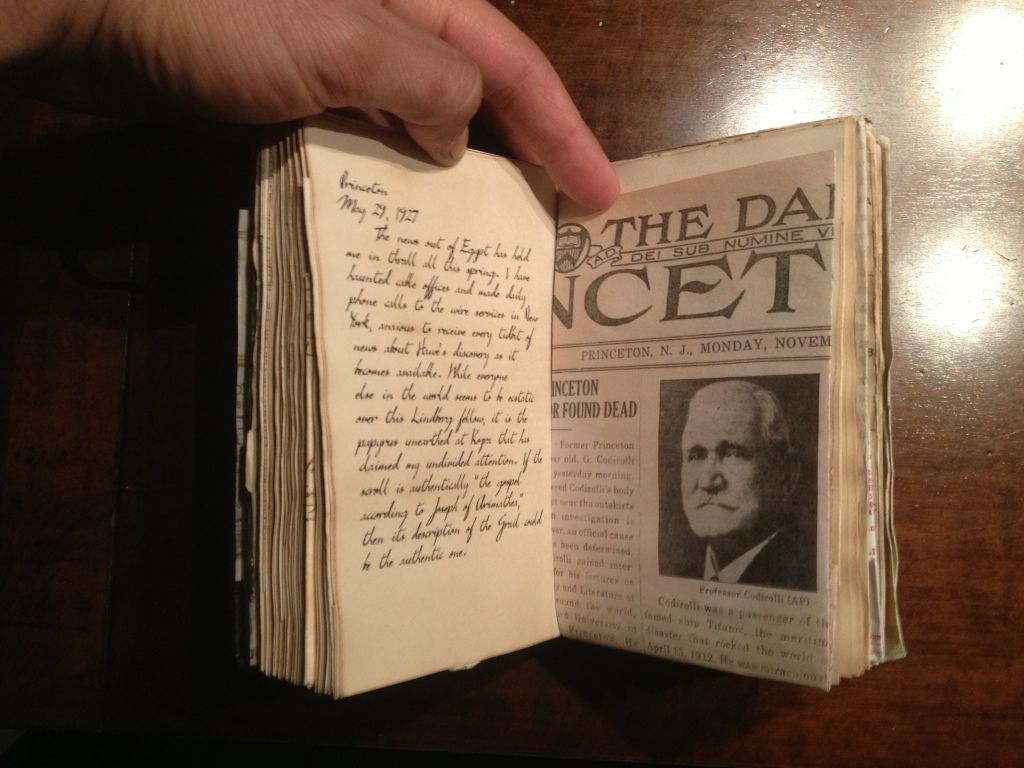 Princeton
May 29, 1927
The news out of Egypt has held
me in thrall all this spring. I have
haunted cable offices and made daily
phone calls to the wire services in New
York, anxious to receive every tidbit of
news about Hawe's discovery as it
becomes available. While everyone
else in the world seems to be ecstatic
over this Lindberg fellow, it is the
papyrus unearthed at Kopa that has
claimed my undivided attention. If the
scroll is authentically "the gospel
according to Joseph of Arimathea,"
then its description of the Grail could
be the authentic one.
THE DAI
DEI SUB NUMINE VI
NCET
PRINCETON, N. J., MONDAY, NOVEM
INCETON
R FOUND DEAD
Former Princeton
or old, G. Codirolli
yesterday morning.
ered Codirolli's body
t near the outskirts
n investigation is
er, an official cause
s been determined.
irolli gained inter-
for his lectures on
y and Literature of
round the world,
rd University in
Princeton. He
Professor Codirolli (AP)
Codirolli was a passenger of th
famed ship Titanic, the maritim
disaster that rocked the world o
April 15, 1912. He was miraculous